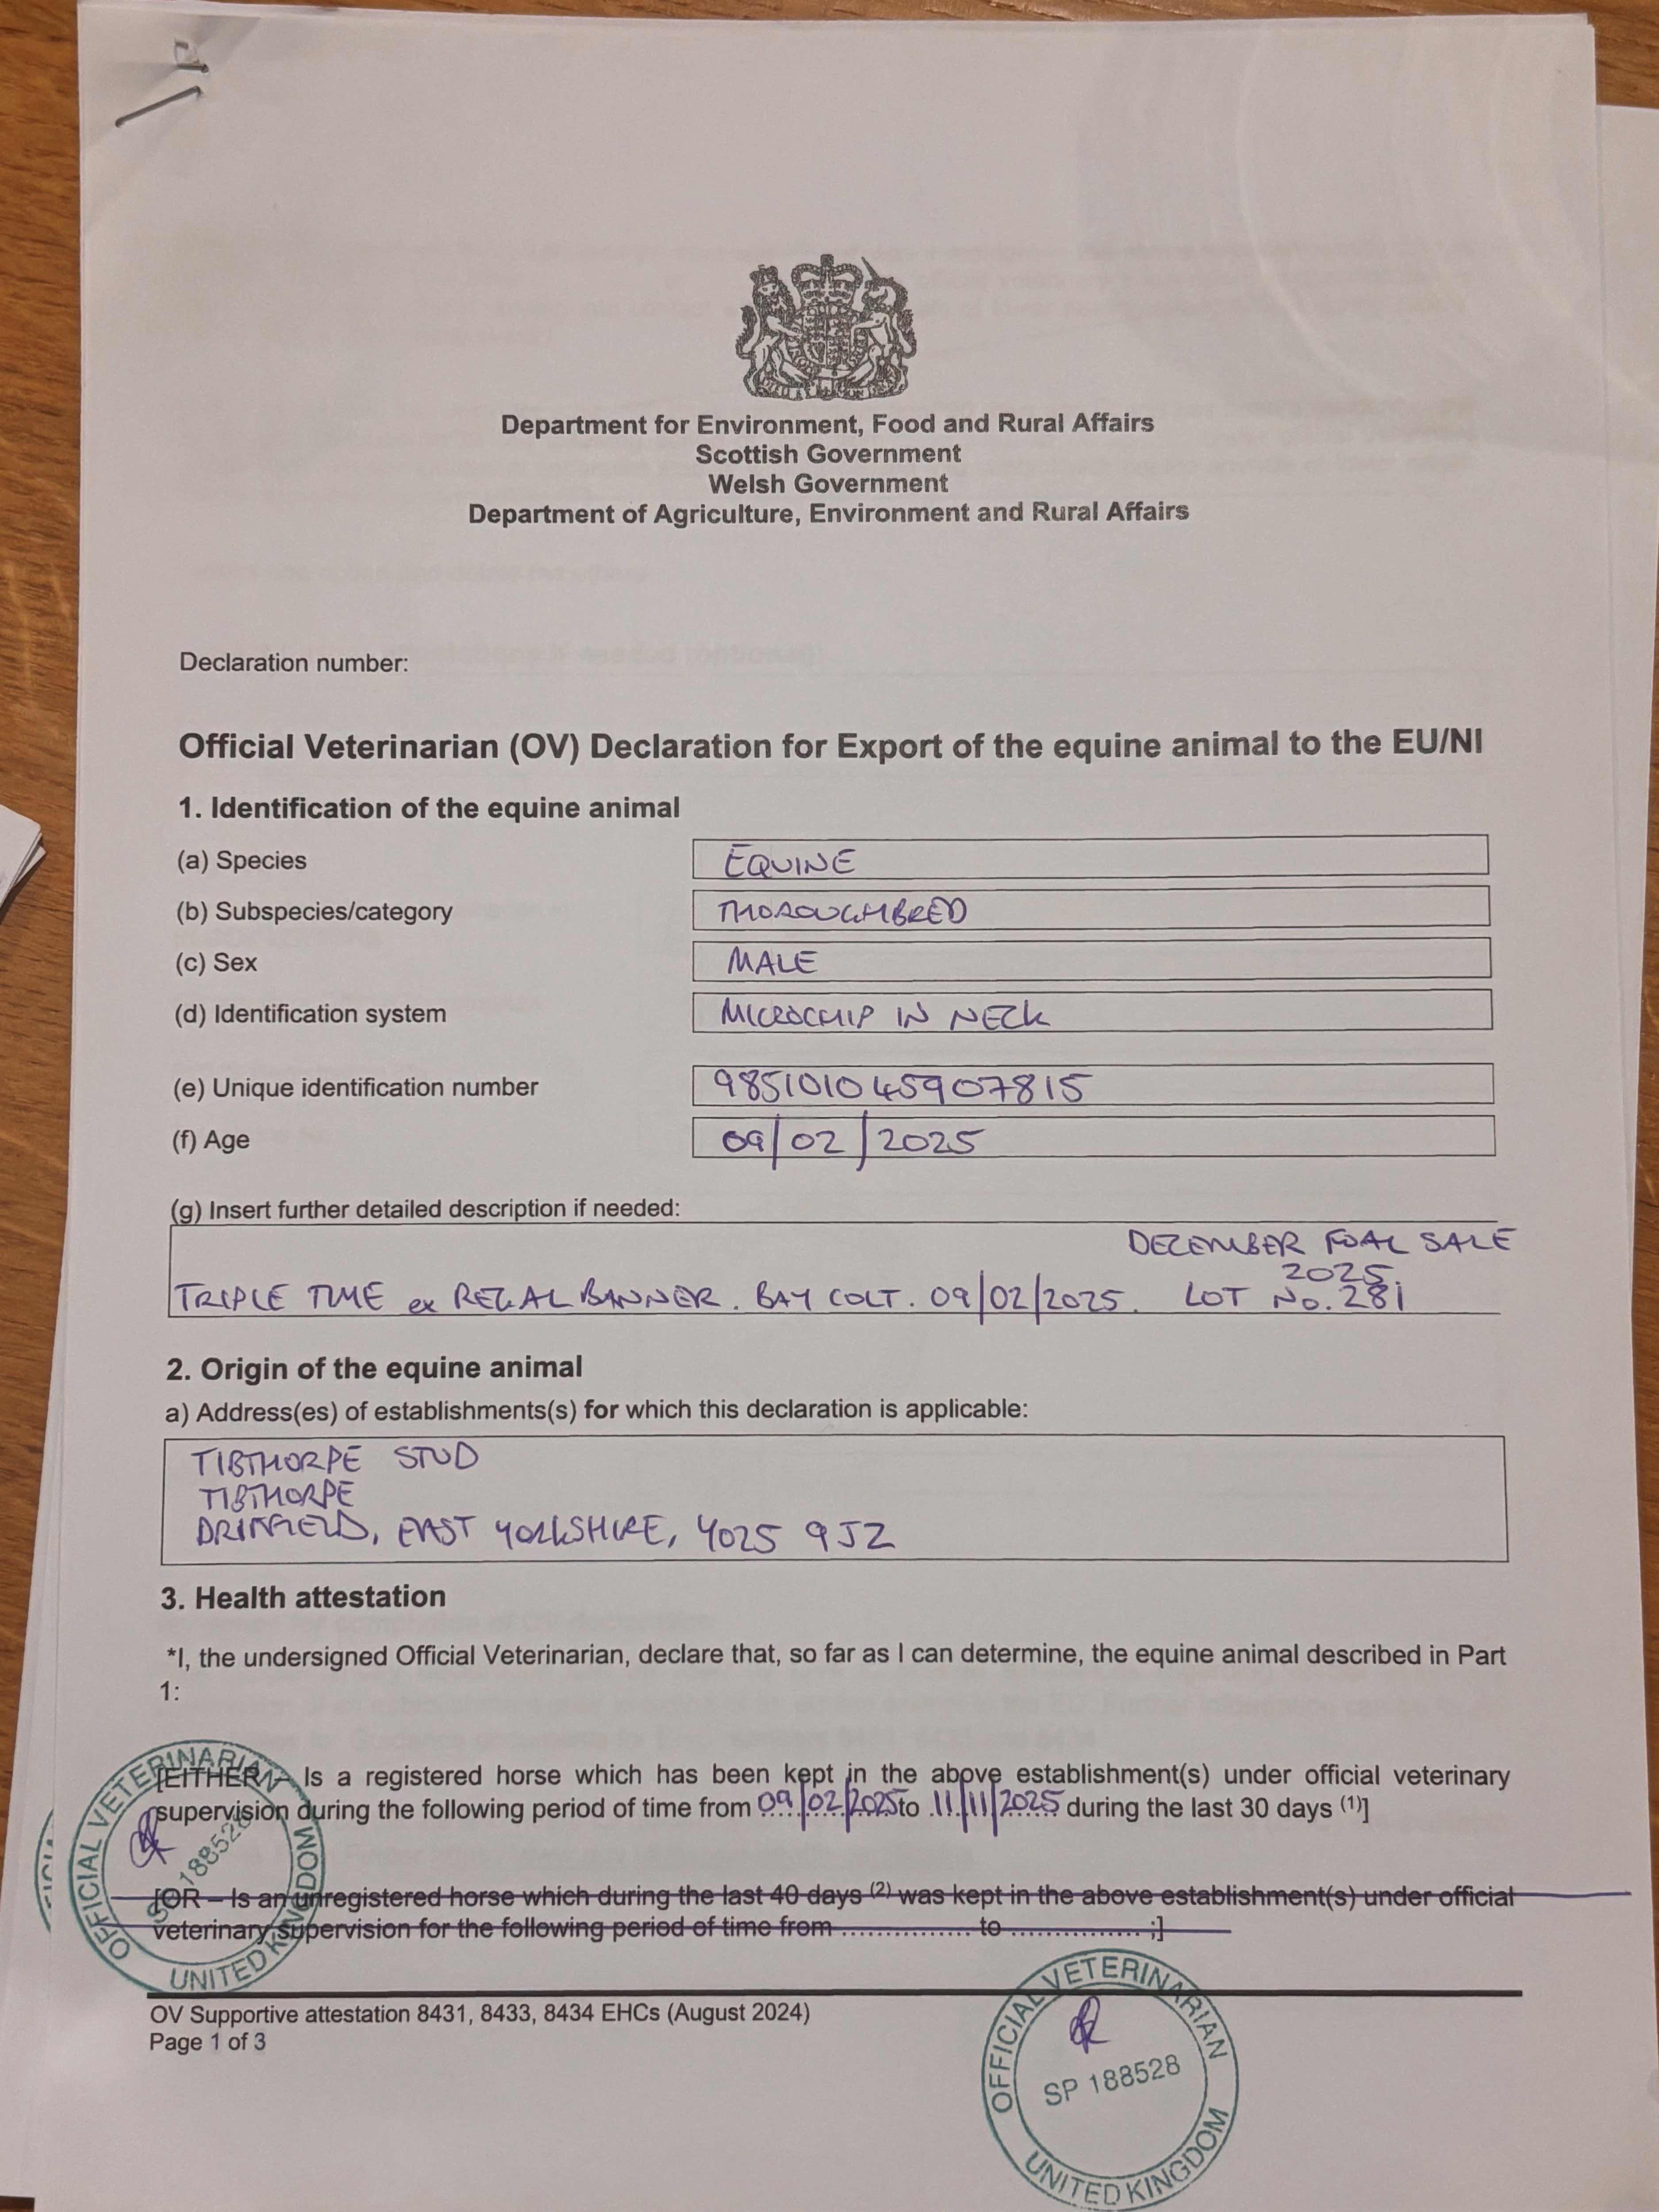 Department for Environment, Food and Rural Affairs
Scottish Government
Welsh Government
Department of Agriculture, Environment and Rural Affairs
Declaration number:
Official Veterinarian (OV) Declaration for Export of the equine animal to the EU/NI
1. Identification of the equine animal
(a) Species EQUINE
(b) Subspecies/category THOROUGHBRED
(c) Sex MALE
(d) Identification system MICROCHIP IN NECK
(e) Unique identification number 985101045907815
(f) Age 09/02/2025
(g) Insert further detailed description if needed:
DECEMBER FOAL SALE
2025.
TRIPLE TIME ex REGAL BANNER. BAY COLT. 09/02/2025. LOT No. 281
2. Origin of the equine animal
a) Address(es) of establishments(s) for which this declaration is applicable:
TIBTHORPE STUD
TIBTHORPE
DRIFFIELD, EAST YORKSHIRE, YO25 9JZ
3. Health attestation
*I, the undersigned Official Veterinarian, declare that, so far as I can determine, the equine animal described in Part
1:
[EITHER – Is a registered horse which has been kept in the above establishment(s) under official veterinary
supervision during the following period of time from 09/02/2025 to 11/11/2025 during the last 30 days (1)]
[OR – Is an unregistered horse which during the last 40 days (2) was kept in the above establishment(s) under official
veterinary supervision for the following period of time from ............... to ............... ;]
OFFICIAL VETERINARIAN
SP 188528
UNITED KINGDOM
OV Supportive attestation 8431, 8433, 8434 EHCs (August 2024)
Page 1 of 3
OFFICIAL VETERINARIAN
SP 188528
UNITED KINGDOM